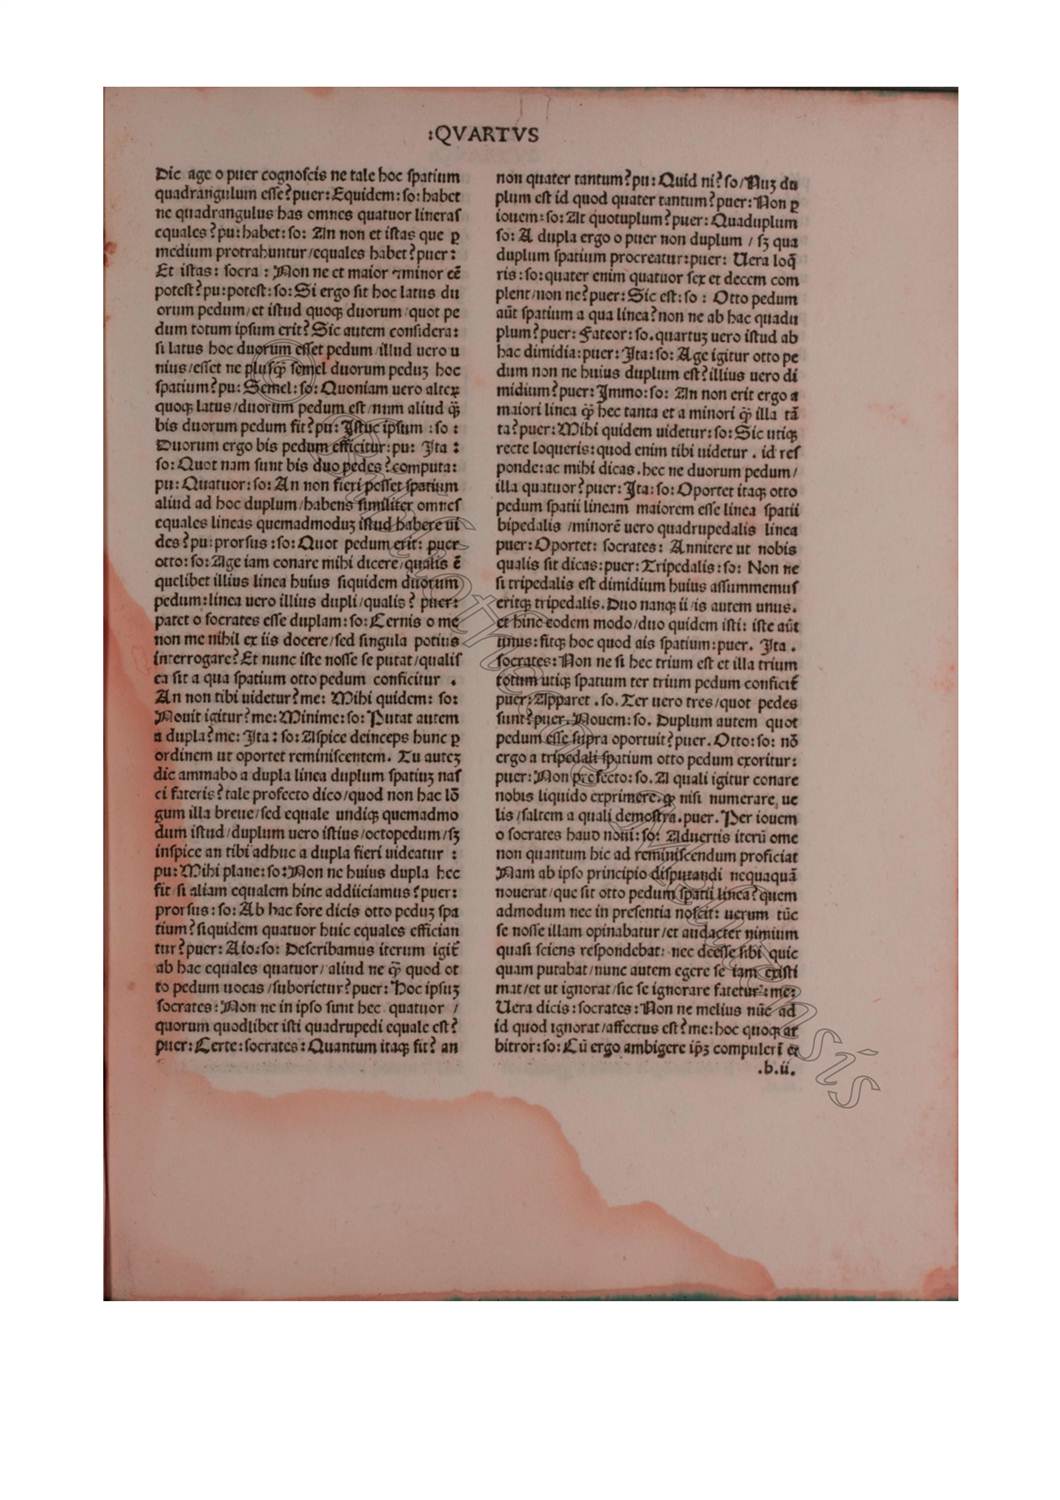 :QVARTVS
Dic age o puer cognoscis ne tale hoc spatium
quadrangulum esse? puer: Equidem: so: habet
ne quadrangulus has omnes quatuor lineras
equales? pu: habet: so: An non et istas que ꝑ
medium protrahuntur/equales habet? puer:
Et istas: socra: Non ne et maior ⁊ minor eē
potest? pu: potest: so: Si ergo sit hoc latus du
orum pedum/et istud quoqꝫ duorum/quot pe
dum totum ipsum erit? Sic autem considera:
si latus hoc duorum esset pedum/illud uero u
nius/esset ne plusqꝫ̃ semel duorum peduꝫ hoc
spatium? pu: Semel: so: Quoniam uero alteꝝ
quoqꝫ latus/duorum pedum est/num aliud qꝫ̃
bis duorum pedum fit? pu: Istuc ipsum: so:
Duorum ergo bis pedum efficitur: pu: Ita:
so: Quot nam sunt bis duo pedes? computa:
pu: Quatuor: so: An non fieri posset spatium
aliud ad hoc duplum/habens similiter omnes
equales lineas quemadmoduꝫ istud habere ui
des? pu: prorsus: so: Quot pedum erit: puer
otto: so: Age iam conare mihi dicere/qualis ē
quelibet illius linea huius siquidem duorum
pedum: linea uero illius dupli/qualis? puer:
patet o socrates esse duplam: so: Cernis o me
non me nihil ex iis docere/sed singula potius
interrogare? Et nunc iste nosse se putat/qualis
ea sit a qua spatium otto pedum conficitur.
An non tibi uidetur? me: Mihi quidem: so:
Nouit igitur? me: Minime: so: Putat autem
a dupla? me: Ita: so: Aspice deinceps hunc ꝑ
ordinem ut oportet reminiscentem. Tu auteꝫ
dic ammabo a dupla linea duplum spatiuꝫ nas
ci fateris? tale profecto dico/quod non hac lō
gum illa breue/sed equale undiqꝫ quemadmo
dum istud/duplum uero istius/octopedum/sꝫ
inspice an tibi adhuc a dupla fieri uideatur:
pu: Mihi plane: so: Non ne huius dupla hec
fit si aliam equalem hinc addiiciamus? puer:
prorsus: so: Ab hac fore dicis otto peduꝫ spa
tium? siquidem quatuor huic equales effician
tur? puer: Aio: so: Describamus iterum igit̃
ab hac equales quatuor/aliud ne qꝫ̃ quod ot
to pedum uocas/suborietur? puer: Hoc ipsuꝫ
socrates: Non ne in ipso sunt hec quatuor/
quorum quodlibet isti quadrupedi equale est?
puer: Certe: socrates: Quantum itaqꝫ fit? an
non quater tantum? pu: Quid ni? so/Nuꝫ du
plum est id quod quater tantum? puer: Non ꝑ
iouem: so: At quotuplum? puer: Quaduplum
so: A dupla ergo o puer non duplum/sꝫ qua
duplum spatium procreatur: puer: Uera loq̃
ris: so: quater enim quatuor sex et decem com
plent/non ne? puer: Sic est: so: Otto pedum
aūt spatium a qua linea? non ne ab hac quadu
plum? puer: Fateor: so. quartuꝫ uero istud ab
hac dimidia: puer: Ita: so: Age igitur otto pe
dum non ne huius duplum est? illius uero di
midium? puer: Immo: so: An non erit ergo a
maiori linea qꝫ̃ hec tanta et a minori qꝫ̃ illa tā
ta? puer: Mihi quidem uidetur: so: Sic utiqꝫ
recte loqueris: quod enim tibi uidetur. id res
ponde: ac mihi dicas. hec ne duorum pedum/
illa quatuor? puer: Ita: so: Oportet itaqꝫ otto
pedum spatii lineam maiorem esse linea spatii
bipedalis/minorē uero quadrupedalis linea
puer: Oportet: socrates: Annitere ut nobis
qualis sit dicas: puer: Tripedalis: so: Non ne
si tripedalis est dimidium huius assummemus
eritqꝫ tripedalis. Duo nanqꝫ ii/is autem unus.
et hinc eodem modo/duo quidem isti: iste aūt
unus: fitqꝫ hoc quod ais spatium: puer. Ita.
socrates: Non ne si hec trium est et illa trium
totum utiqꝫ spatium ter trium pedum conficit̃
puer: Apparet. so. Ter uero tres/quot pedes
sunt? puer. Nouem: so. Duplum autem quot
pedum esse supra oportuit? puer. Otto: so: nō
ergo a tripedali spatium otto pedum exoritur:
puer: Non profecto: so. A quali igitur conare
nobis liquido exprimere. qꝫ nisi numerare ue
lis/saltem a quali demōstra. puer. Per iouem
o socrates haud noui: so: Aduertis iterū ome
non quantum hic ad reminiscendum proficiat
Nam ab ipso principio disputandi nequaquā
nouerat/que sit otto pedum spatii linea? quem
admodum nec in presentia noscit: uerum tūc
se nosse illam opinabatur/et audacter nimium
quasi sciens respondebat: nec deesse sibi quic
quam putabat/nunc autem egere se iam existi
mat/et ut ignorat/sic se ignorare fatetur: me:
Uera dicis: socrates: Non ne melius nūc ad
id quod ignorat/affectus est? me: hoc quoqꝫ ar
bitror: so: Cū ergo ambigere ipꝫ compulerī et
.b.ii.